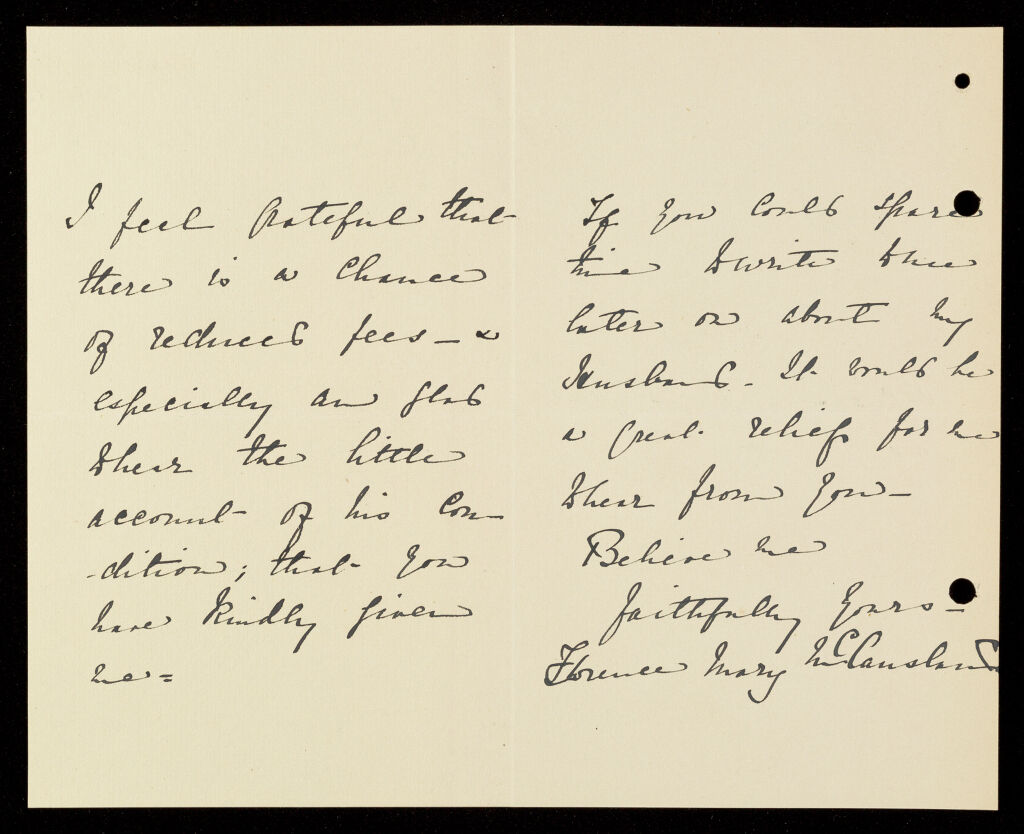 I feel grateful that
there is a chance
of reduced fees — &
especially am glad
to hear the little
account of his con-
-dition; that you
have kindly given
me =
If you could spare
time to write to me
later on about my
Husband. It would be
a great relief for me
to hear from you —
Believe me
faithfully yours —
Florence Mary McCausland